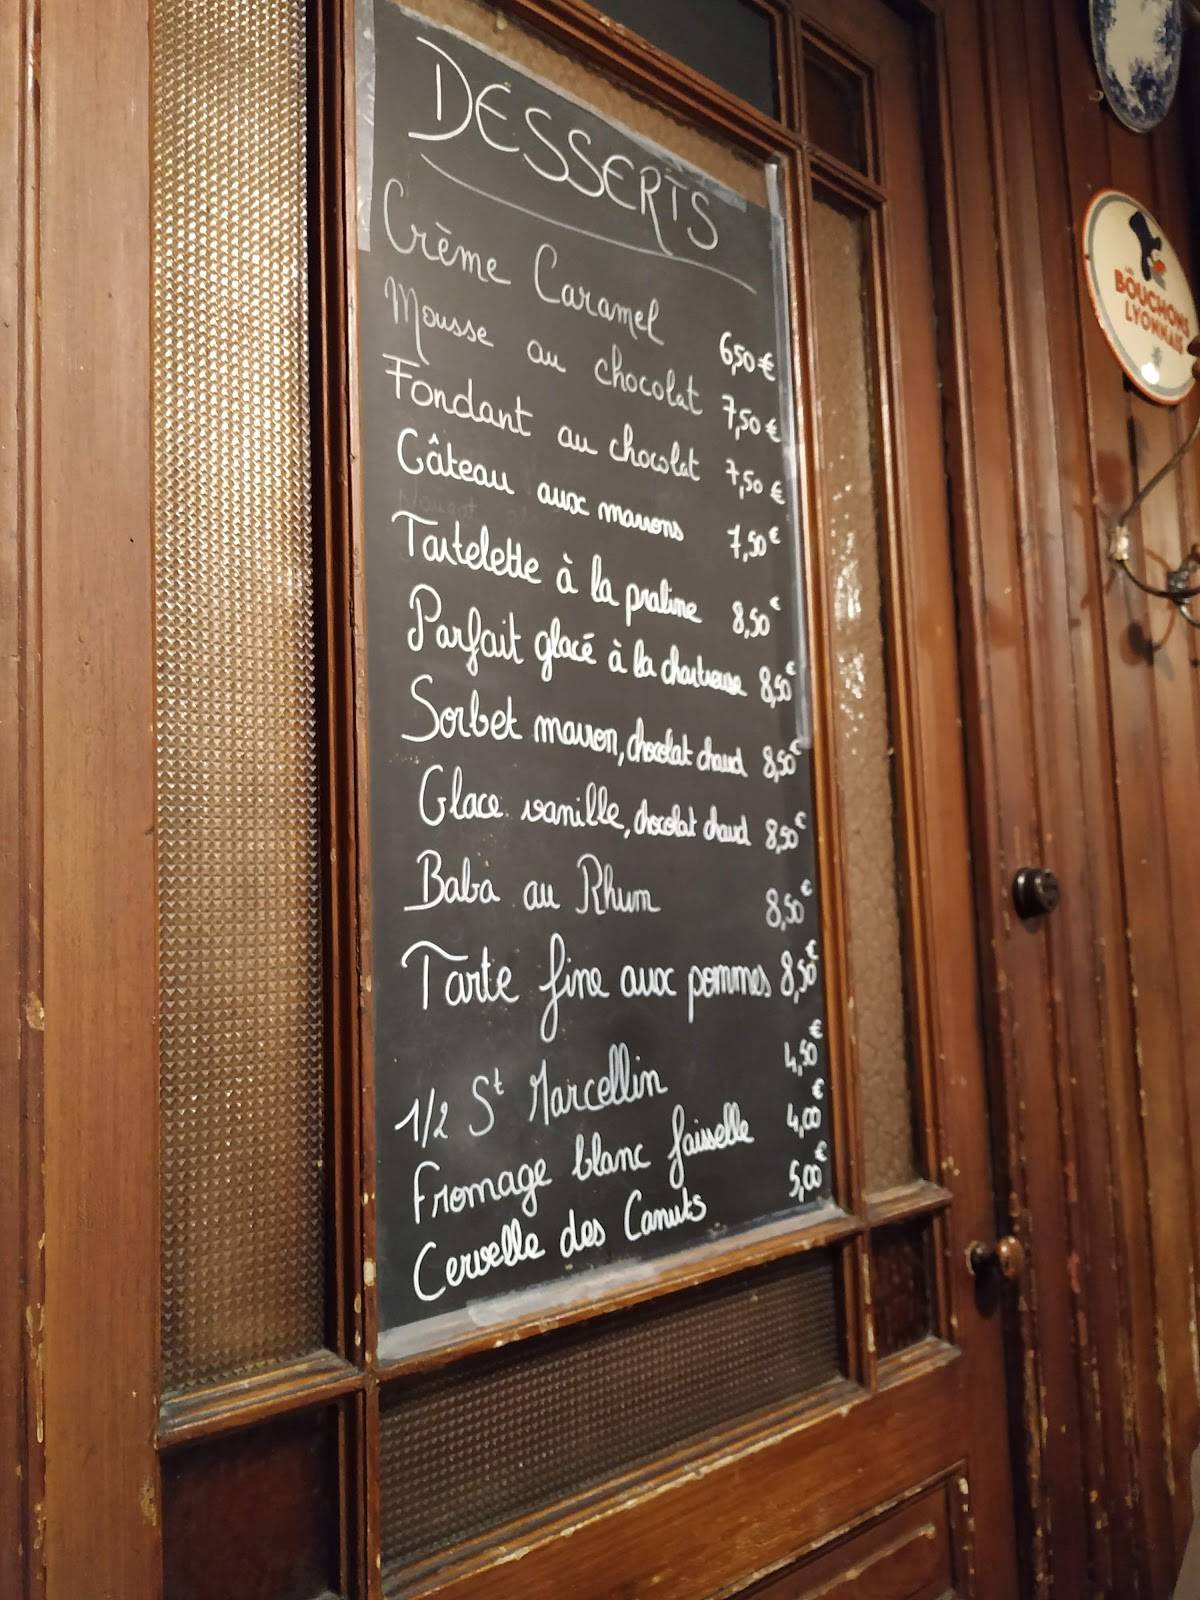 DESSERTS
Crème Caramel 6,50 €
Mousse au chocolat 7,50 €
Fondant au chocolat 7,50 €
Gâteau aux marrons 7,50 €
Tartelette à la praline 8,50 €
Parfait glacé à la chartreuse 8,50 €
Sorbet marron, chocolat chaud 8,50 €
Glace vanille, chocolat chaud 8,50 €
Baba au Rhum 8,50 €
Tarte fine aux pommes 8,50 €
1/2 St Marcellin 4,50 €
Fromage blanc faisselle 4,00 €
Cervelle des Canuts 5,00 €
LES
BOUCHONS
LYONNAIS